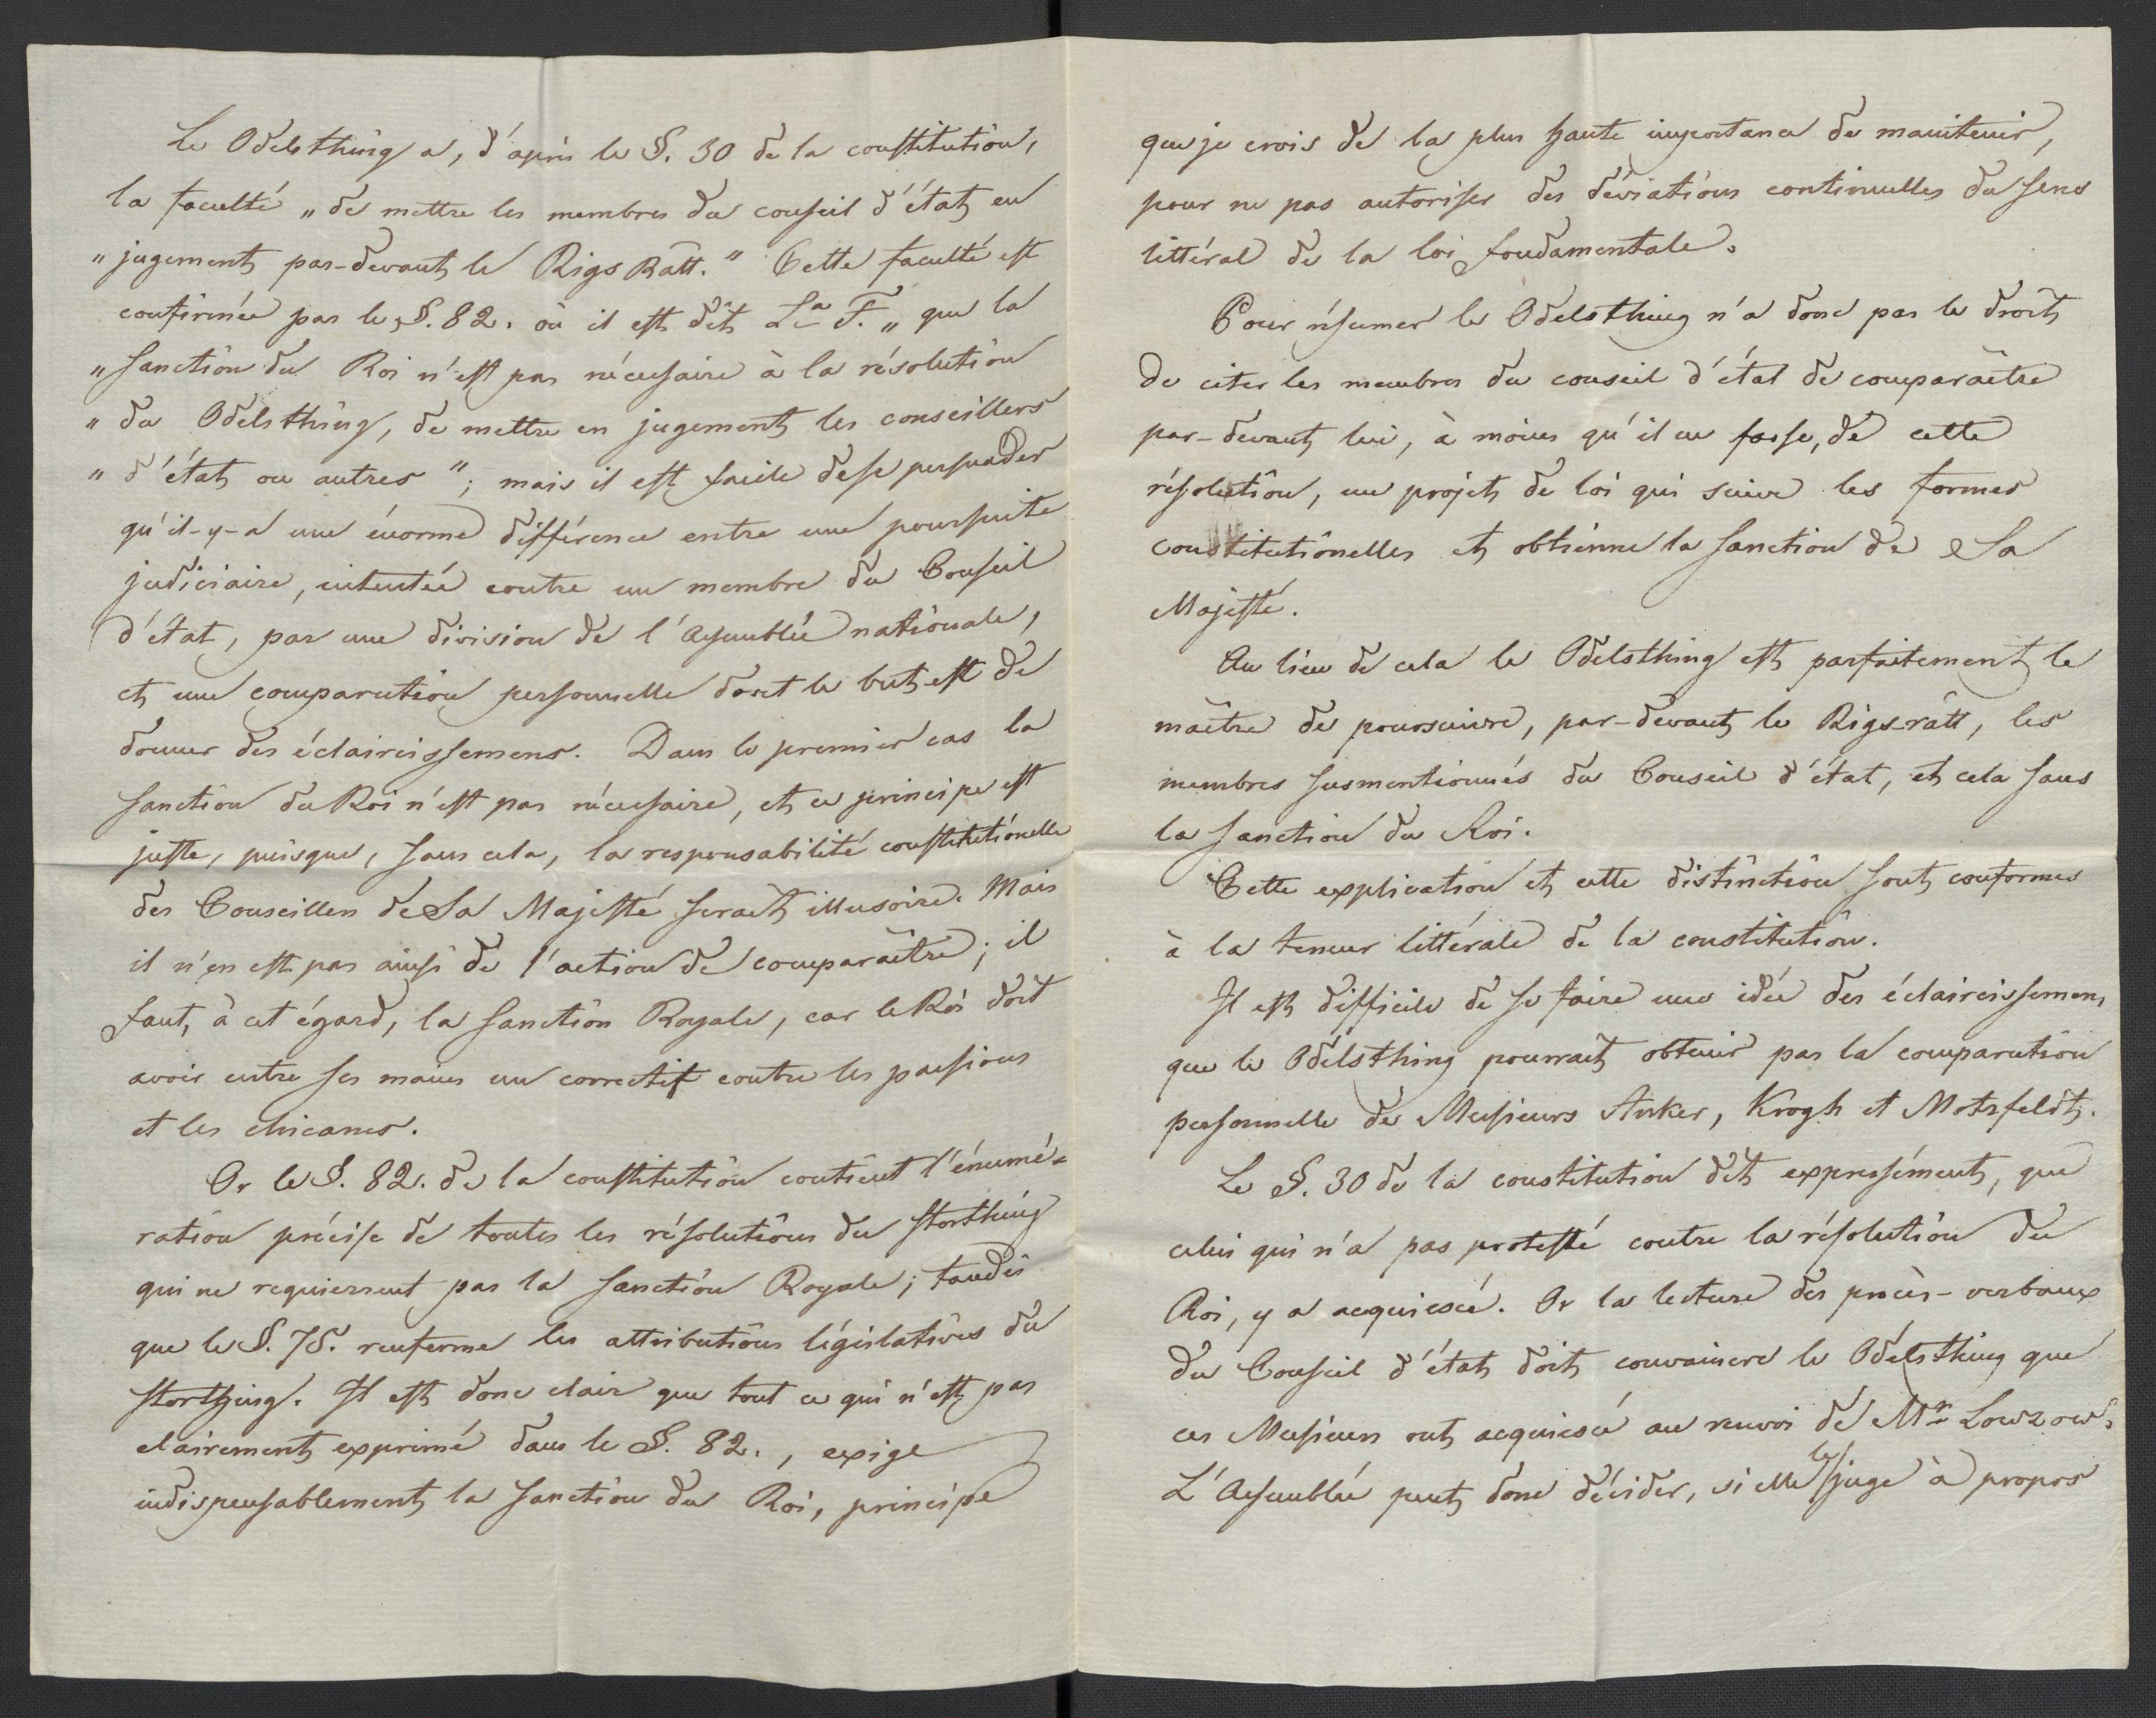 Le Odelsthing a, d'après le §. 30 de la constitution,
la faculté „ de mettre les membres du conseil d'état en
„ jugement par-devant le Rigs Rätt." Cette faculté est
confirmée par le §. 82. où il est dit La F. „ que la
„ sanction du Roi n'est pas nécessaire à la résolution
„ du Odelsthing, de mettre en jugement les conseillers
„ d'état ou autres "; mais il est facile de se persuader
qu'il-y-a une énorme différence entre une poursuite
judiciaire, intentée contre un membre du Conseil
d'état, par une division de l'Assemblée nationale,
et une comparution personnelle dont le but est de
donner des éclaircissemens. Dans le premier cas la
sanction du Roi n'est pas nécessaire, et ce principe est
juste, puisque, sans cela, la responsabilité constitutionelle
des Conseillers de Sa Majesté serait illusoire. Mais
il n'en est pas ainsi de l'action de comparaître; il
faut, à cet égard, la sanction Royale, car le Roi doit
avoir entre ses mains un correctif contre les passions
et les chicanes.
Or le §. 82. de la constitution contient l'énumé=
ration précise de toutes les résolutions du Storthing
qui ne requierrent pas la sanction Royale; tandis
que le §. 75. renferme les attributions législatives du
Storthing. Il est donc clair que tout ce qui n'est pas
clairement exprimé dans le §. 82., exige
indispensablement la sanction du Roi, principe
que je crois de la plus haute importance de maintenir,
pour ne pas autoriser des déviations continuelles du sens
littéral de la loi fondamentale.
Pour résumer le Odelsthing n'a donc pas le droit
de citer les membres du conseil d'état de comparaître
par-devant lui, à moins qu'il ne fasse, de cette
résolution, un projet de loi qui suive les formes
constitutionelles et obtienne la sanction de Sa
Majesté.
Au lieu de cela le Odelsthing est parfaitement le
maître de poursuivre, par-devant le Rigs-rätt, les
membres susmentionnés du Conseil d'état, et cela sans
la sanction du Roi.
Cette explication et cette distinction sont conformes
à la teneur littérale de la constitution.
Il est difficile de se faire une idée des éclaircissemens
que le Odelsthing pourrait obtenir par la comparution
personnelle de Messieurs Anker, Krogh et Motzfeldt.
Le §. 30 de la constitution dit expressément, que
celui qui n'a pas protesté contre la résolution du
Roi, y a acquiescé. Or la lecture des procès-verbaux
du Conseil d'état doit convaincre le Odelsthing que
ces Messieurs ont acquiescé au renvoi de Mr Lowzow.
L'Assemblée peut donc décider, si elle le juge à propos